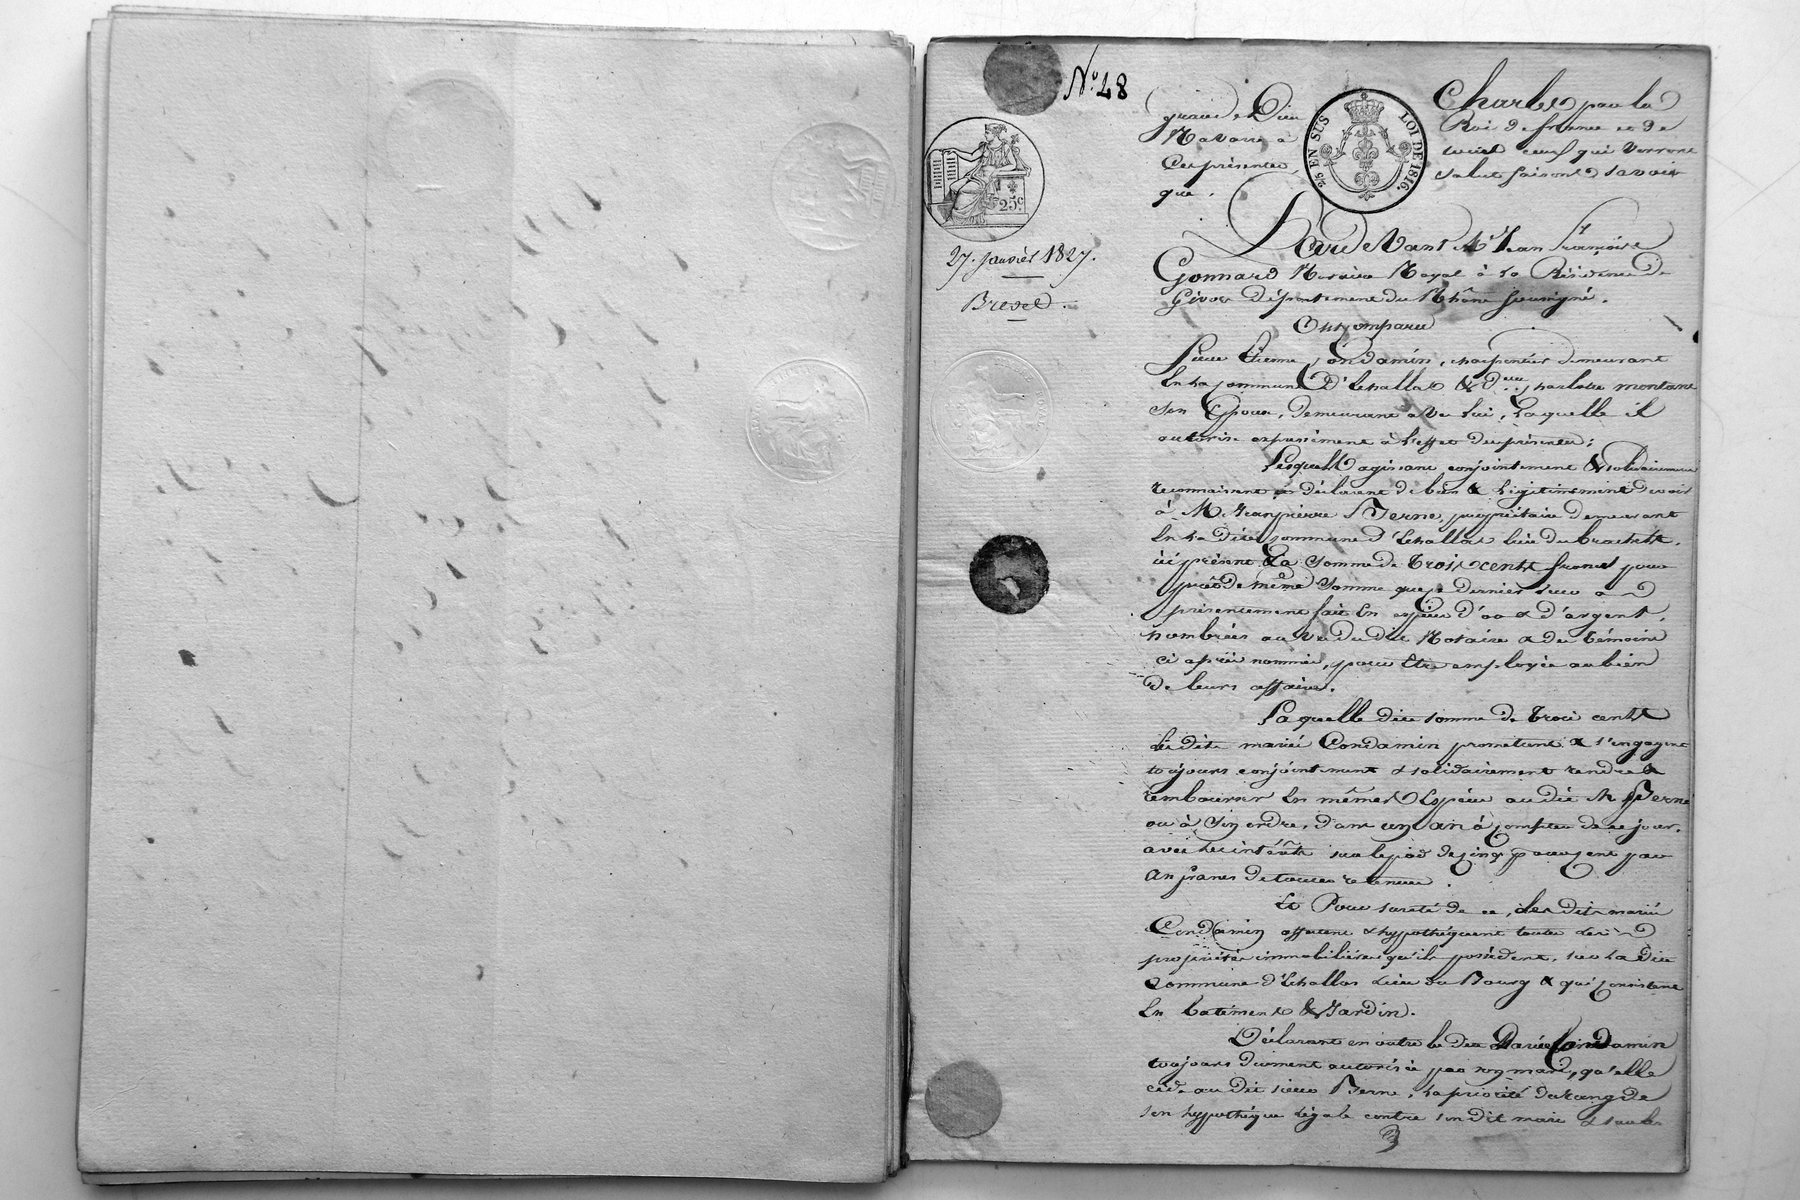 N° 48
Charles par la
grace de Dieu Roi de france et de
Navarre, à tous ceux qui verront
Ces présentes, salut faisons savoir
que,
2/5 EN SUS LOI DE 1816.
25c
27. janvier 1827.
Brevet.
Pardevant Me Jean françois
Gonnard Notaire Royal à la Résidence de
Givors département du Rhône soussigné.
Ont comparu
Sieur Etienne Condamin, charpentier demeurant
En la commune D'Echallas & dme charlotte montane
Son Epouse, demeurant avec lui, laquelle il
autorise expressément à l'effet des présentes;
Lesquels agissant conjointement & solidairement
reconnaissent et déclarent de bien & légitimement devoir
à M. Jeanpierre Berne, propriétaire demeurant
En la dite commune d'Echallas lieu du
ici présent La Somme de trois cents francs pour
prêt de même Somme que ce Dernier leur a
présentement fait En espèces d'or & d'argent,
nombrées au vu du dit Notaire & des témoins
ci après nommés, pour être employée au bien
de leurs affaires.
Laquelle dite somme de trois cents
les dits mariés Condamin promettent & s'engagent
toujours conjointement & solidairement rendre &
rembourser En mêmes Espèces au dit M. Berne
ou à Son ordre, dans un an à compter de ce jour,
avec les intérêts sur le pied de cinq pour cent par
an francs de toutes retenues.
Et Pour sureté de ce, les dits mariés
Condamin affectent & hypothéquent toutes les
propriétés immobilières qu'ils possèdent, sur la dite
Commune d'Echallas Lieu du Bourg & qui consistent
En batiments & Jardin.
Déclarant en outre la dite Mariée Condamin
toujours dûment autorisée par son mari, qu'elle
cède au dit sieur Berne, la priorité du rang de
son hypothèque légale contre son dit mari & sur les